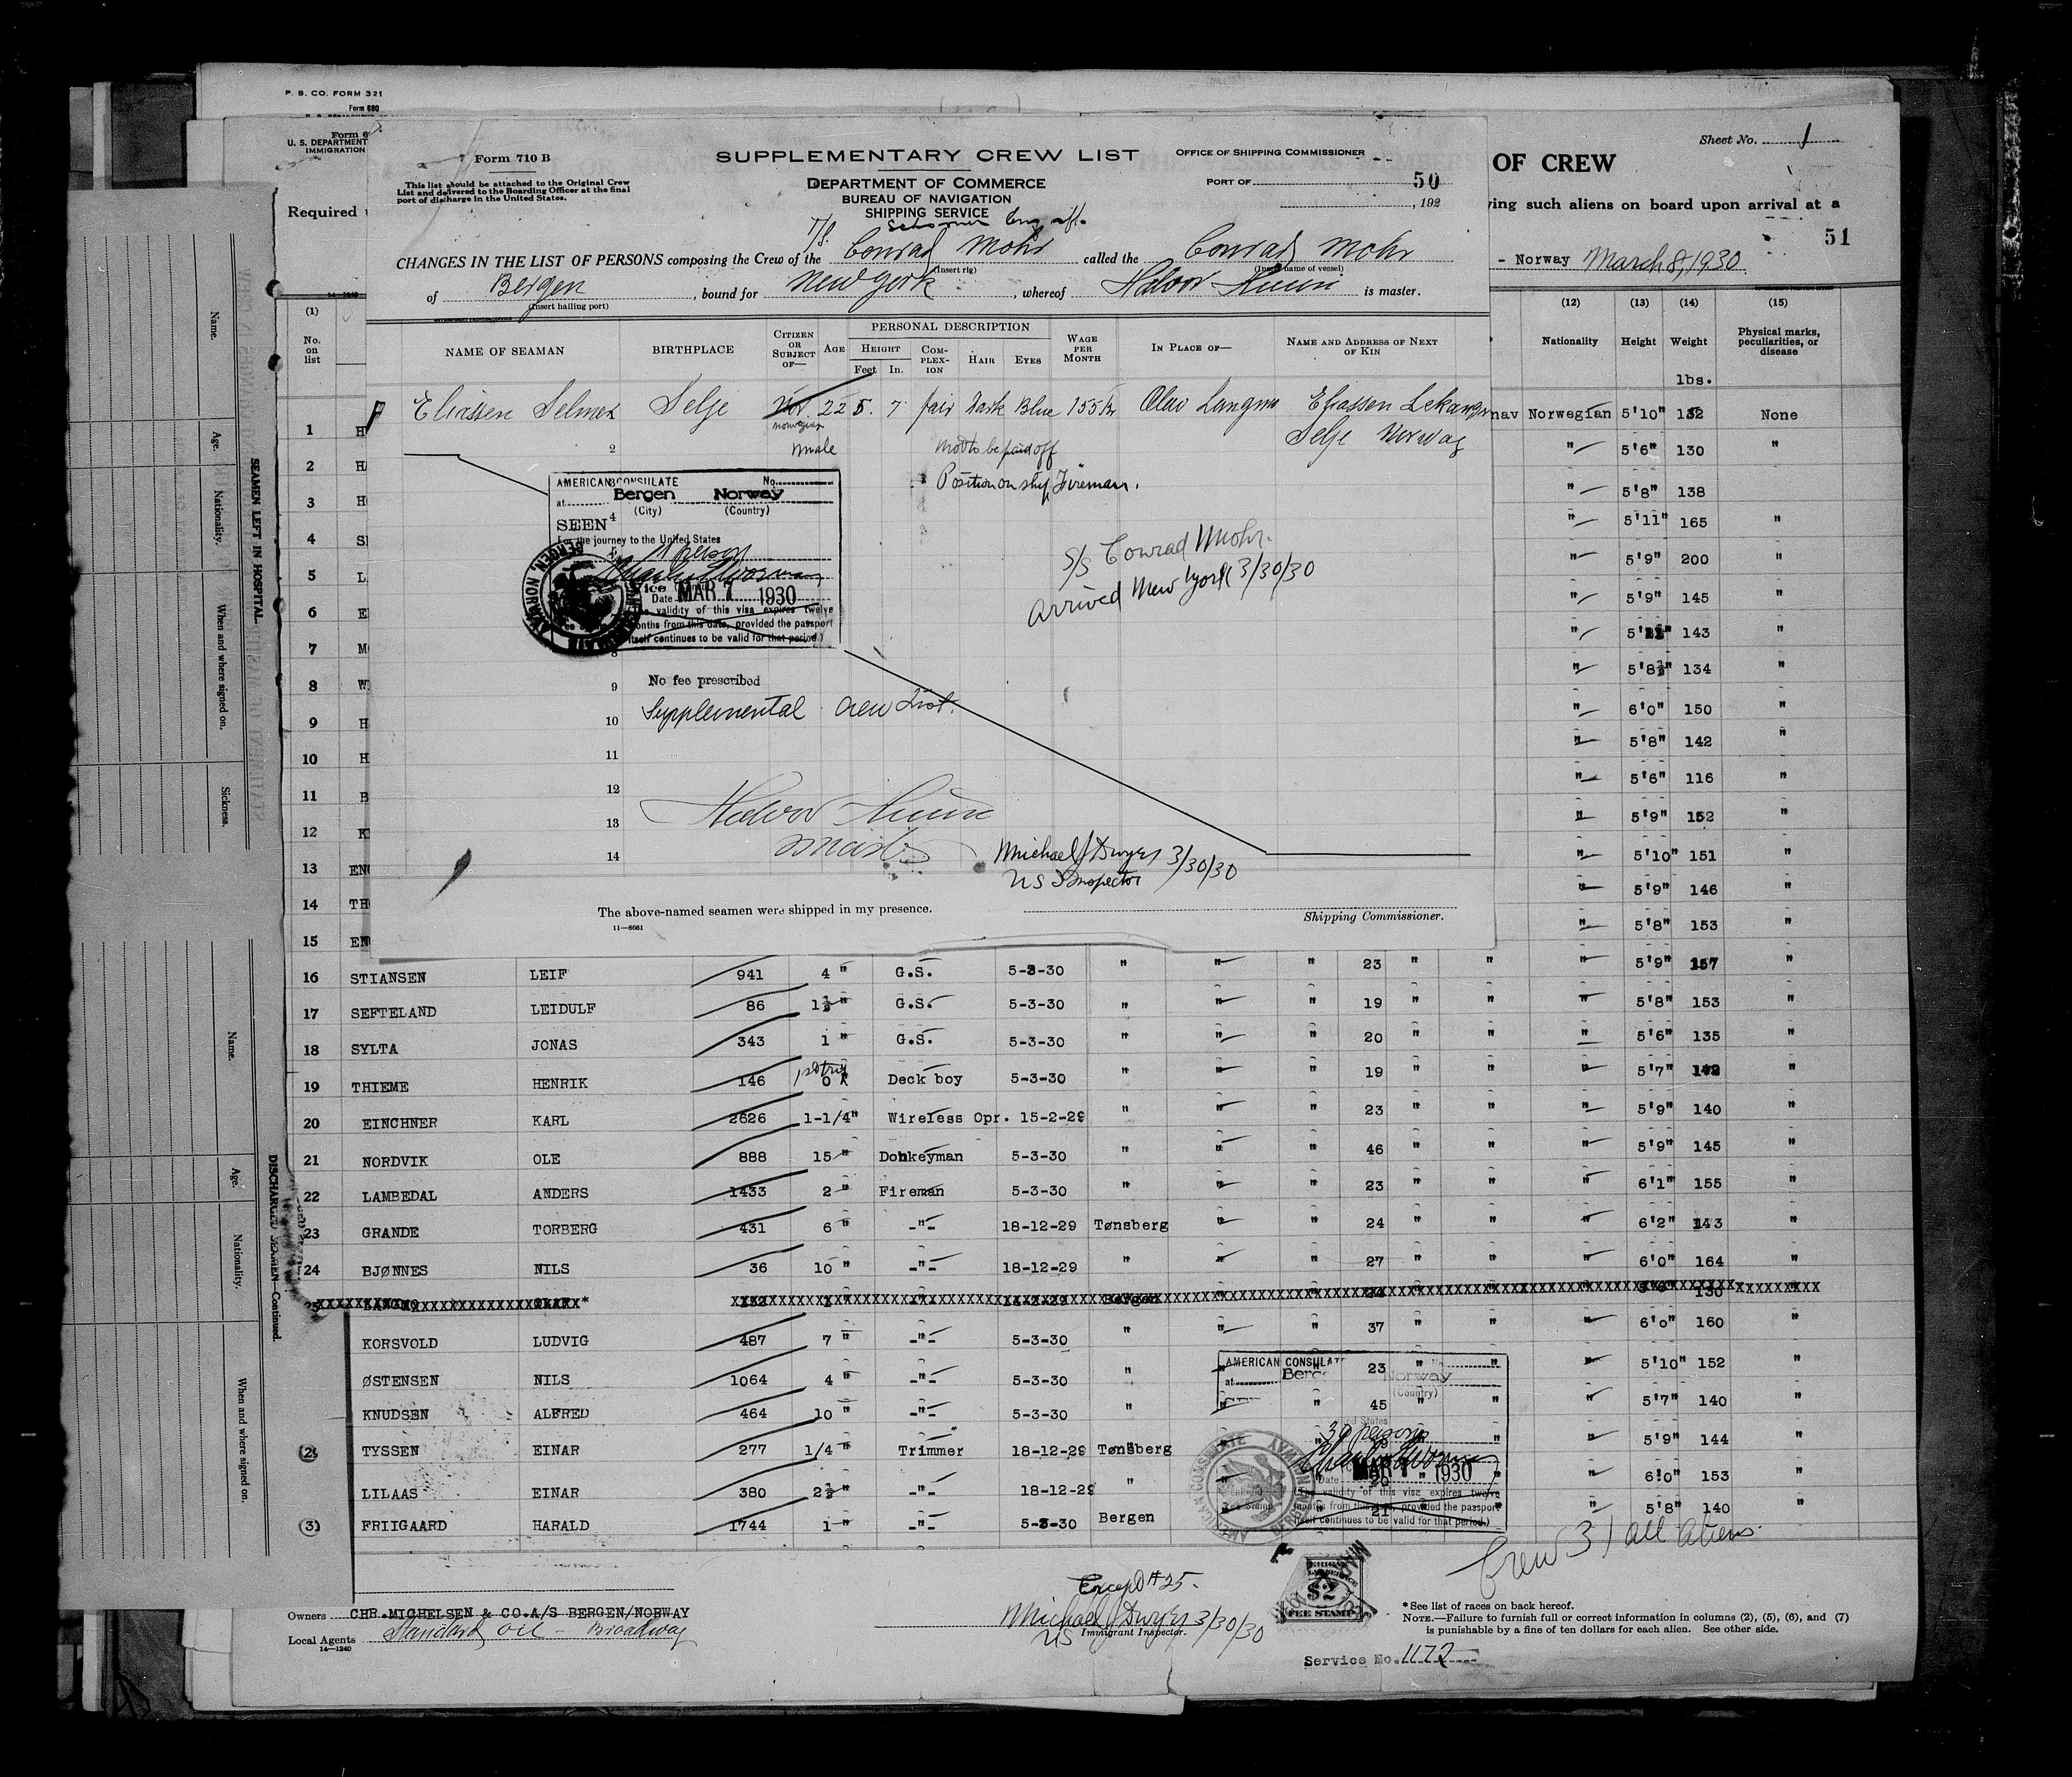 P. S. CO. FORM 321
Form 680
Form 6
U. S. DEPARTMENT
IMMIGRATION
Required
Sheet No. 1
OF CREW
ving such aliens on board upon arrival at a
51
- Norway March 8, 1930
Form 710 B
This list should be attached to the Original Crew
List and delivered to the Boarding Officer at the final
port of discharge in the United States.
SUPPLEMENTARY CREW LIST
DEPARTMENT OF COMMERCE
BUREAU OF NAVIGATION
SHIPPING SERVICE
OFFICE OF SHIPPING COMMISSIONER
PORT OF 50
, 192
CHANGES IN THE LIST OF PERSONS composing the Crew of the Conrad Mohr called the Conrad Mohr
(Insert rig) (Insert name of vessel)
of Bergen, bound for New York, whereof Halvor is master.
(Insert hailing port)
NAME OF SEAMAN BIRTHPLACE CITIZEN OR SUBJECT OF— AGE PERSONAL DESCRIPTION HEIGHT Feet In. COMPLEXION HAIR EYES WAGE PER MONTH IN PLACE OF— NAME AND ADDRESS OF NEXT OF KIN
1 Eliassen Selmer Selje Nor. 22 5. 7 fair Dark Blue 155 Kr Olav Eliassen
norwegian
Selje Norway
2 male Not to be paid off
Position on ship Fireman.
AMERICAN CONSULATE No.
at Bergen Norway
(City) (Country)
SEEN 4
For the journey to the United States
1 person
Vice
Date MAR 7 1930
(The validity of this visa expires twelve
months from this date, provided the passport
itself continues to be valid for that period.)
S/S Conrad Mohr.
Arrived New York 3/30/30
8
9 No fee prescribed
10 Supplemental crew List.
11
12
13 Halvor
Master
14
Michael J Dwyer 3/30/30
US Inspector
The above-named seamen were shipped in my presence.
Shipping Commissioner.
11—8661
(1)
No. on list
(12) (13) (14) (15)
Nationality Height Weight Physical marks, peculiarities, or disease
lbs.
1 H nav Norwegian 5'10" 132 None
2 HA " 5'6" 130 "
3 HO " 5'8" 138
4 S " 5'11" 165 "
5 L " 5'9" 200 "
6 E " 5'9" 145 "
7 MO " 143 "
8 W " 5'8½" 134 "
9 H " 6'0" 150 "
10 H " 5'8" 142 "
11 B " 5'6" 116 "
12 K " 5'9" 152 "
13 ENG " 5'10" 151 "
14 TH " 5'9" 146 "
15 EN " 5'8" 153 "
16 STIANSEN LEIF 941 4 " G.S. 5-3-30 " " " 23 " " " 5'9" 157 "
17 SEFTELAND LEIDULF 86 1½ " G.S. 5-3-30 " " " 19 " " " 5'8" 153 "
18 SYLTA JONAS 343 1 " G.S. 5-3-30 " " " 20 " " " 5'6" 135 "
19 THIEME HENRIK 146 0 Deck boy 5-3-30 " " " 19 " " " 5'7" 142 "
20 EINCHNER KARL 2626 1-1/4" Wireless Opr. 15-2-29 " " " 23 " " " 5'9" 140 "
21 NORDVIK OLE 888 15 " Donkeyman 5-3-30 " " " 46 " " " 5'9" 145 "
22 LAMBEDAL ANDERS 1433 2 " Fireman 5-3-30 " " " 23 " " " 6'1" 155 "
23 GRANDE TORBERG 431 6 " -"- 18-12-29 Tønsberg " " 24 " " " 6'2" 143 "
24 BJØNNES NILS 36 10 " -"- 18-12-29 " " " 27 " " " 6'0" 164 "
25
KORSVOLD LUDVIG 487 7 " -"- 5-3-30 " " " 37 " " " 6'0" 160 "
ØSTENSEN NILS 1064 4 " -"- 5-3-30 " " " 23 " " " 5'10" 152 "
KNUDSEN ALFRED 464 10 " -"- 5-3-30 " " " 45 " " " 5'7" 140 "
TYSSEN EINAR 277 1/4 " Trimmer 18-12-29 Tønsberg " 5'9" 144 "
LILAAS EINAR 380 2½ " -"- 18-12-29 " " 6'0" 153 "
FRIIGAARD HARALD 1744 1 " -"- 5-3-30 Bergen " 21 " " " 5'8" 140 "
AMERICAN CONSULATE
at Bergen Norway
(Country)
30 persons
Date MAR 7 1930
(The validity of this visa expires twelve
months from this date, provided the passport
itself continues to be valid for that period.)
Crew 31 all Aliens
Except # 25.
$2
FEE STAMP
Owners CHR.MICHELSEN & CO.A/S BERGEN/NORWAY
Local Agents Standard Oil - Broadway
14—1240
Michael J Dwyer 3/30/30
US Immigrant Inspector.
*See list of races on back hereof.
NOTE.—Failure to furnish full or correct information in columns (2), (5), (6), and (7)
is punishable by a fine of ten dollars for each alien. See other side.
Service No. 1172
SEAMEN LEFT IN HOSPITAL.
Name. Age. Nationality. When and where signed on. Sickness.
DISCHARGED SEAMEN—Continued.
Name. Age. Nationality. When and where signed on.